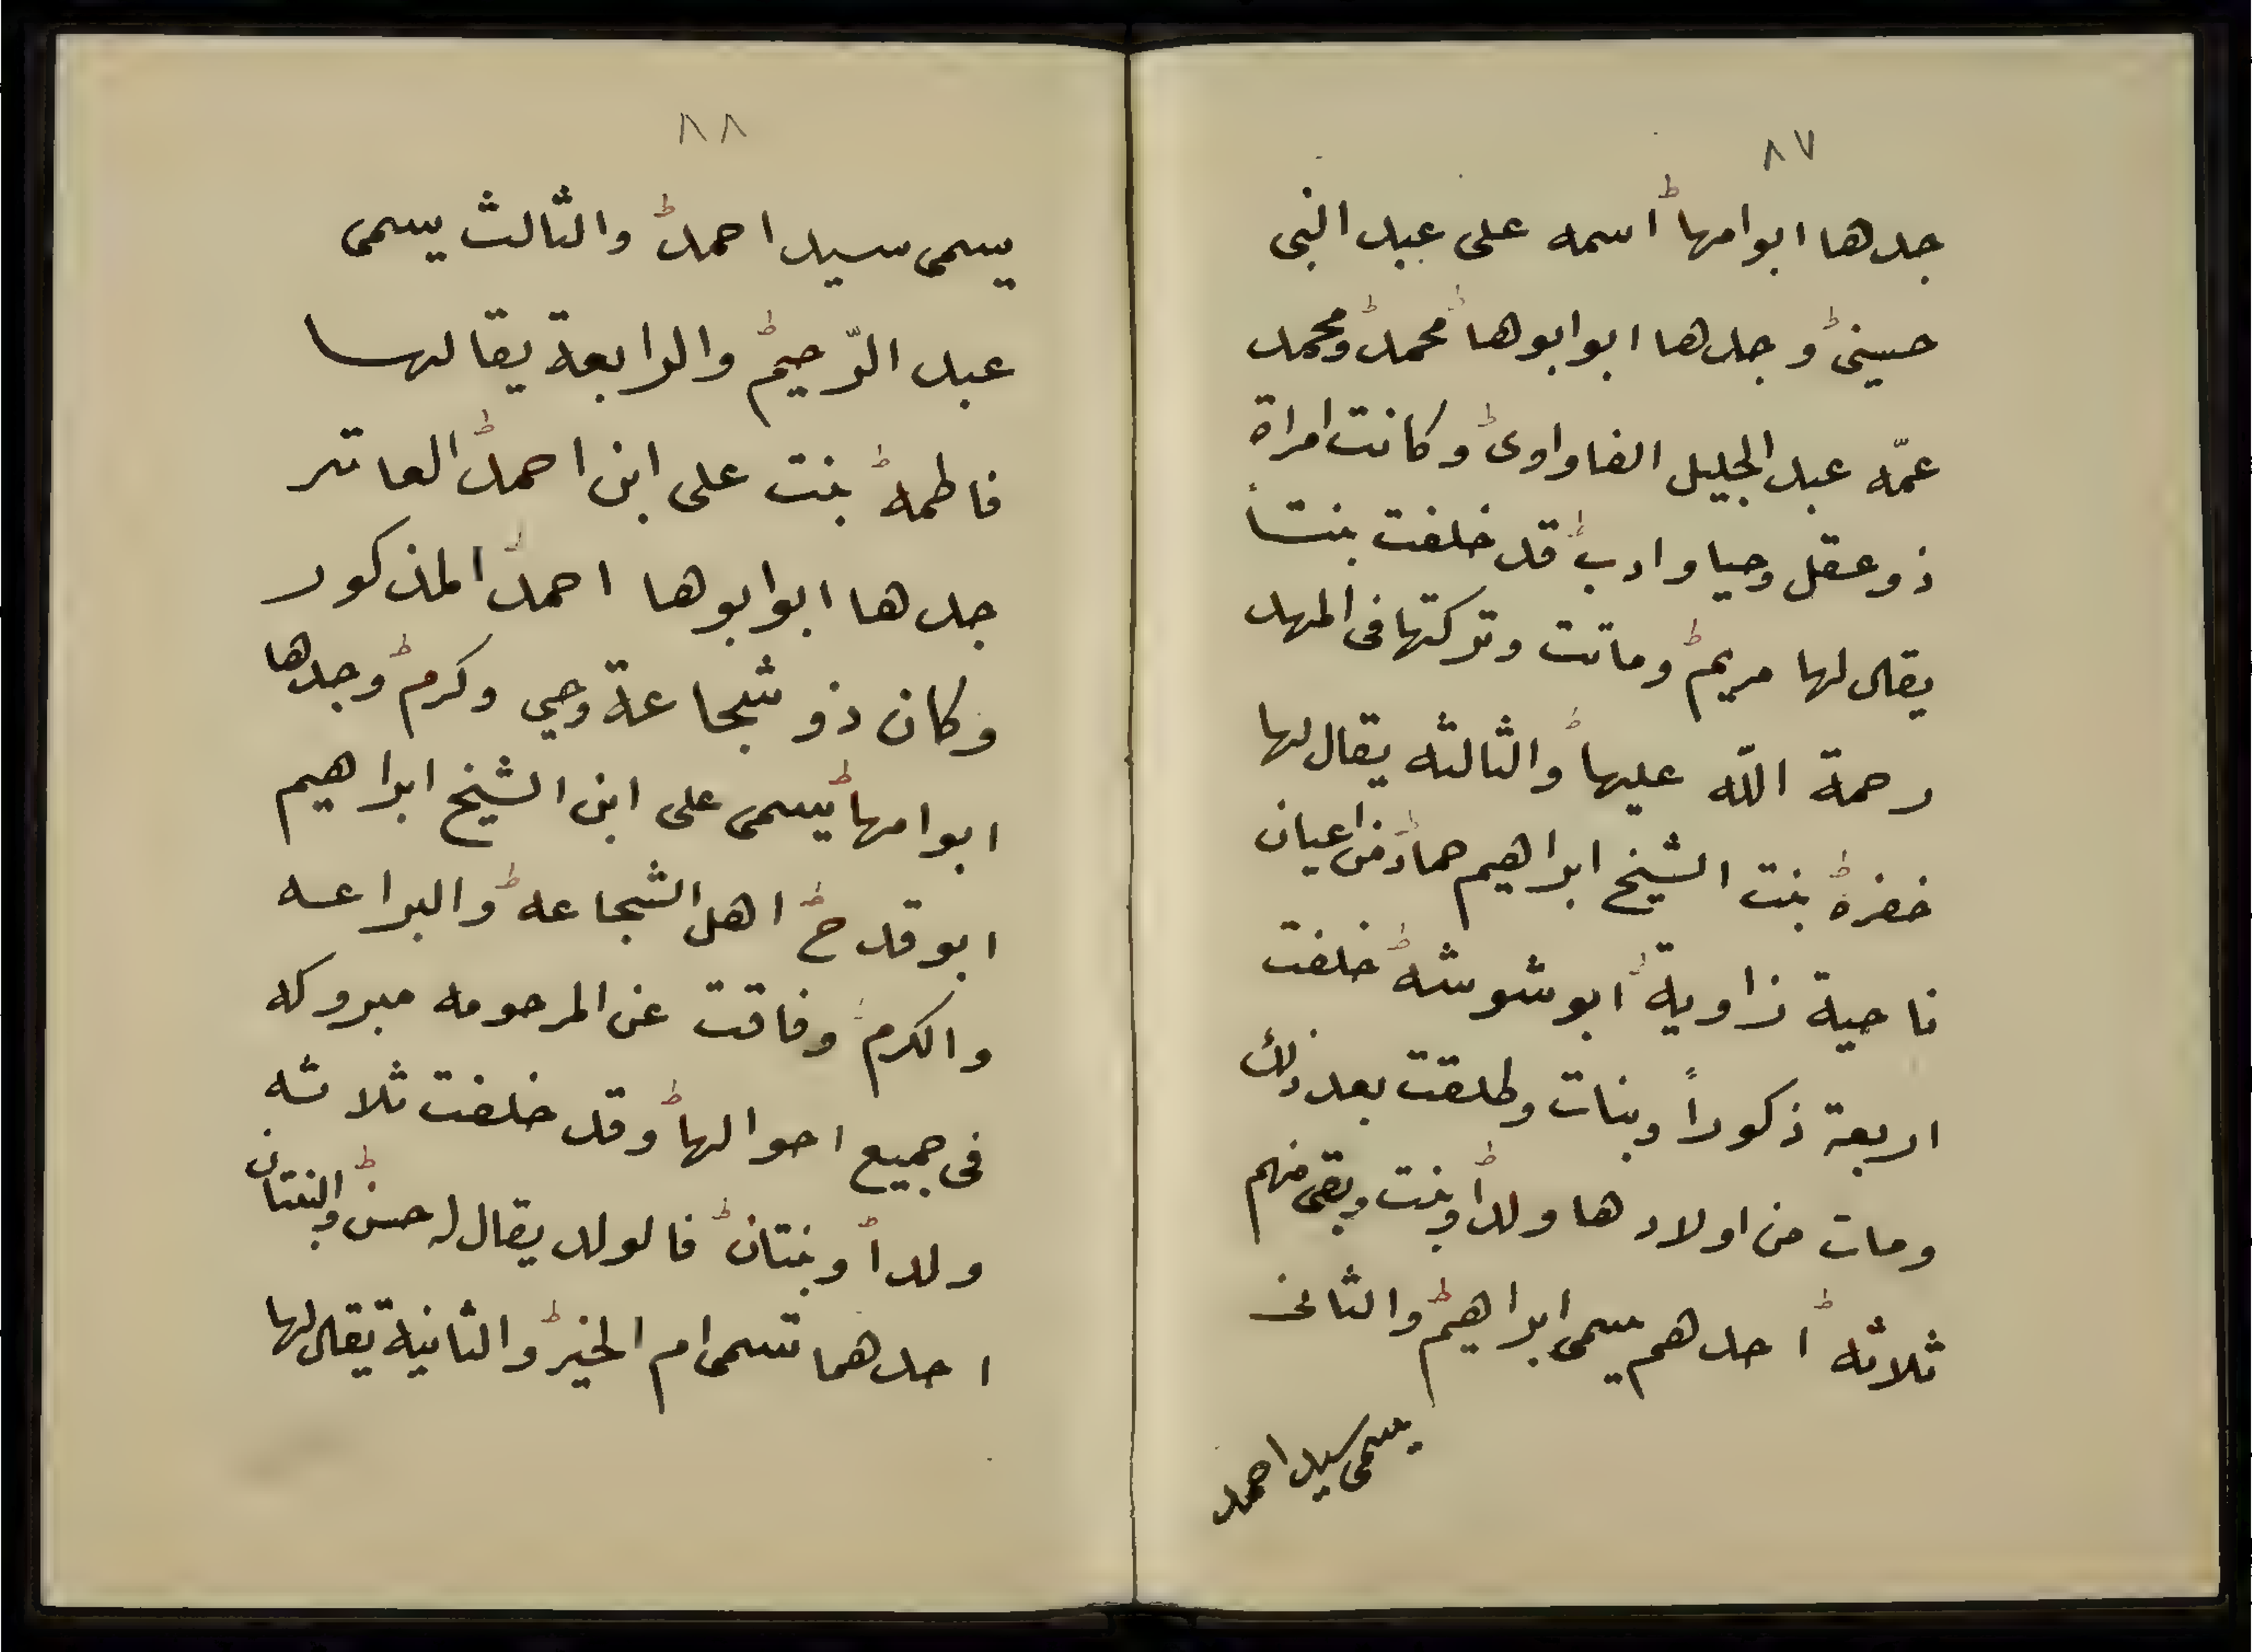 ٨٧
جدها ابوامها اسمه على عبد النبى
حسينى وجدها ابوابوها محمد ومحمد
عمّه عبد الجليل الفاواوى وكانت امراة
ذو عقل وحيا وادب قد خلفت بنتاً
يقال لها مريم وماتت وتركتها فى المهد
رحمة الله عليها والثالثه يقال لها
خضره بنت الشيخ ابراهيم حماد من اعيان
ناحية زاوية ابوشوشه خلفت
اربعة ذكوراً وبنات وطلقت بعد ذلك
ومات من اولادها ولداً وبنت وبقى منهم
ثلاثه احدهم يسمى ابراهيم والثانى
يسمى سيد احمد
٨٨
يسمى سيد احمد والثالث يسمى
عبد الرّحيم والرابعة يقالها
فاطمه بنت على ابن احمد العاتر
جدها ابوابوها احمد المذكور
وكان ذو شجاعة وحي وكرم وجدها
ابوامها يسمى على ابن الشيخ ابراهيم
ابوقدح اهل الشجاعه والبراعه
والكرم وفاقت عن المرحومه مبروكه
فى جميع احوالها وقد خلفت ثلاثه
ولداً وبنتان فالولد يقال له حسن والبنتان
احدهما تسمى ام الخير والثانية يقال لها